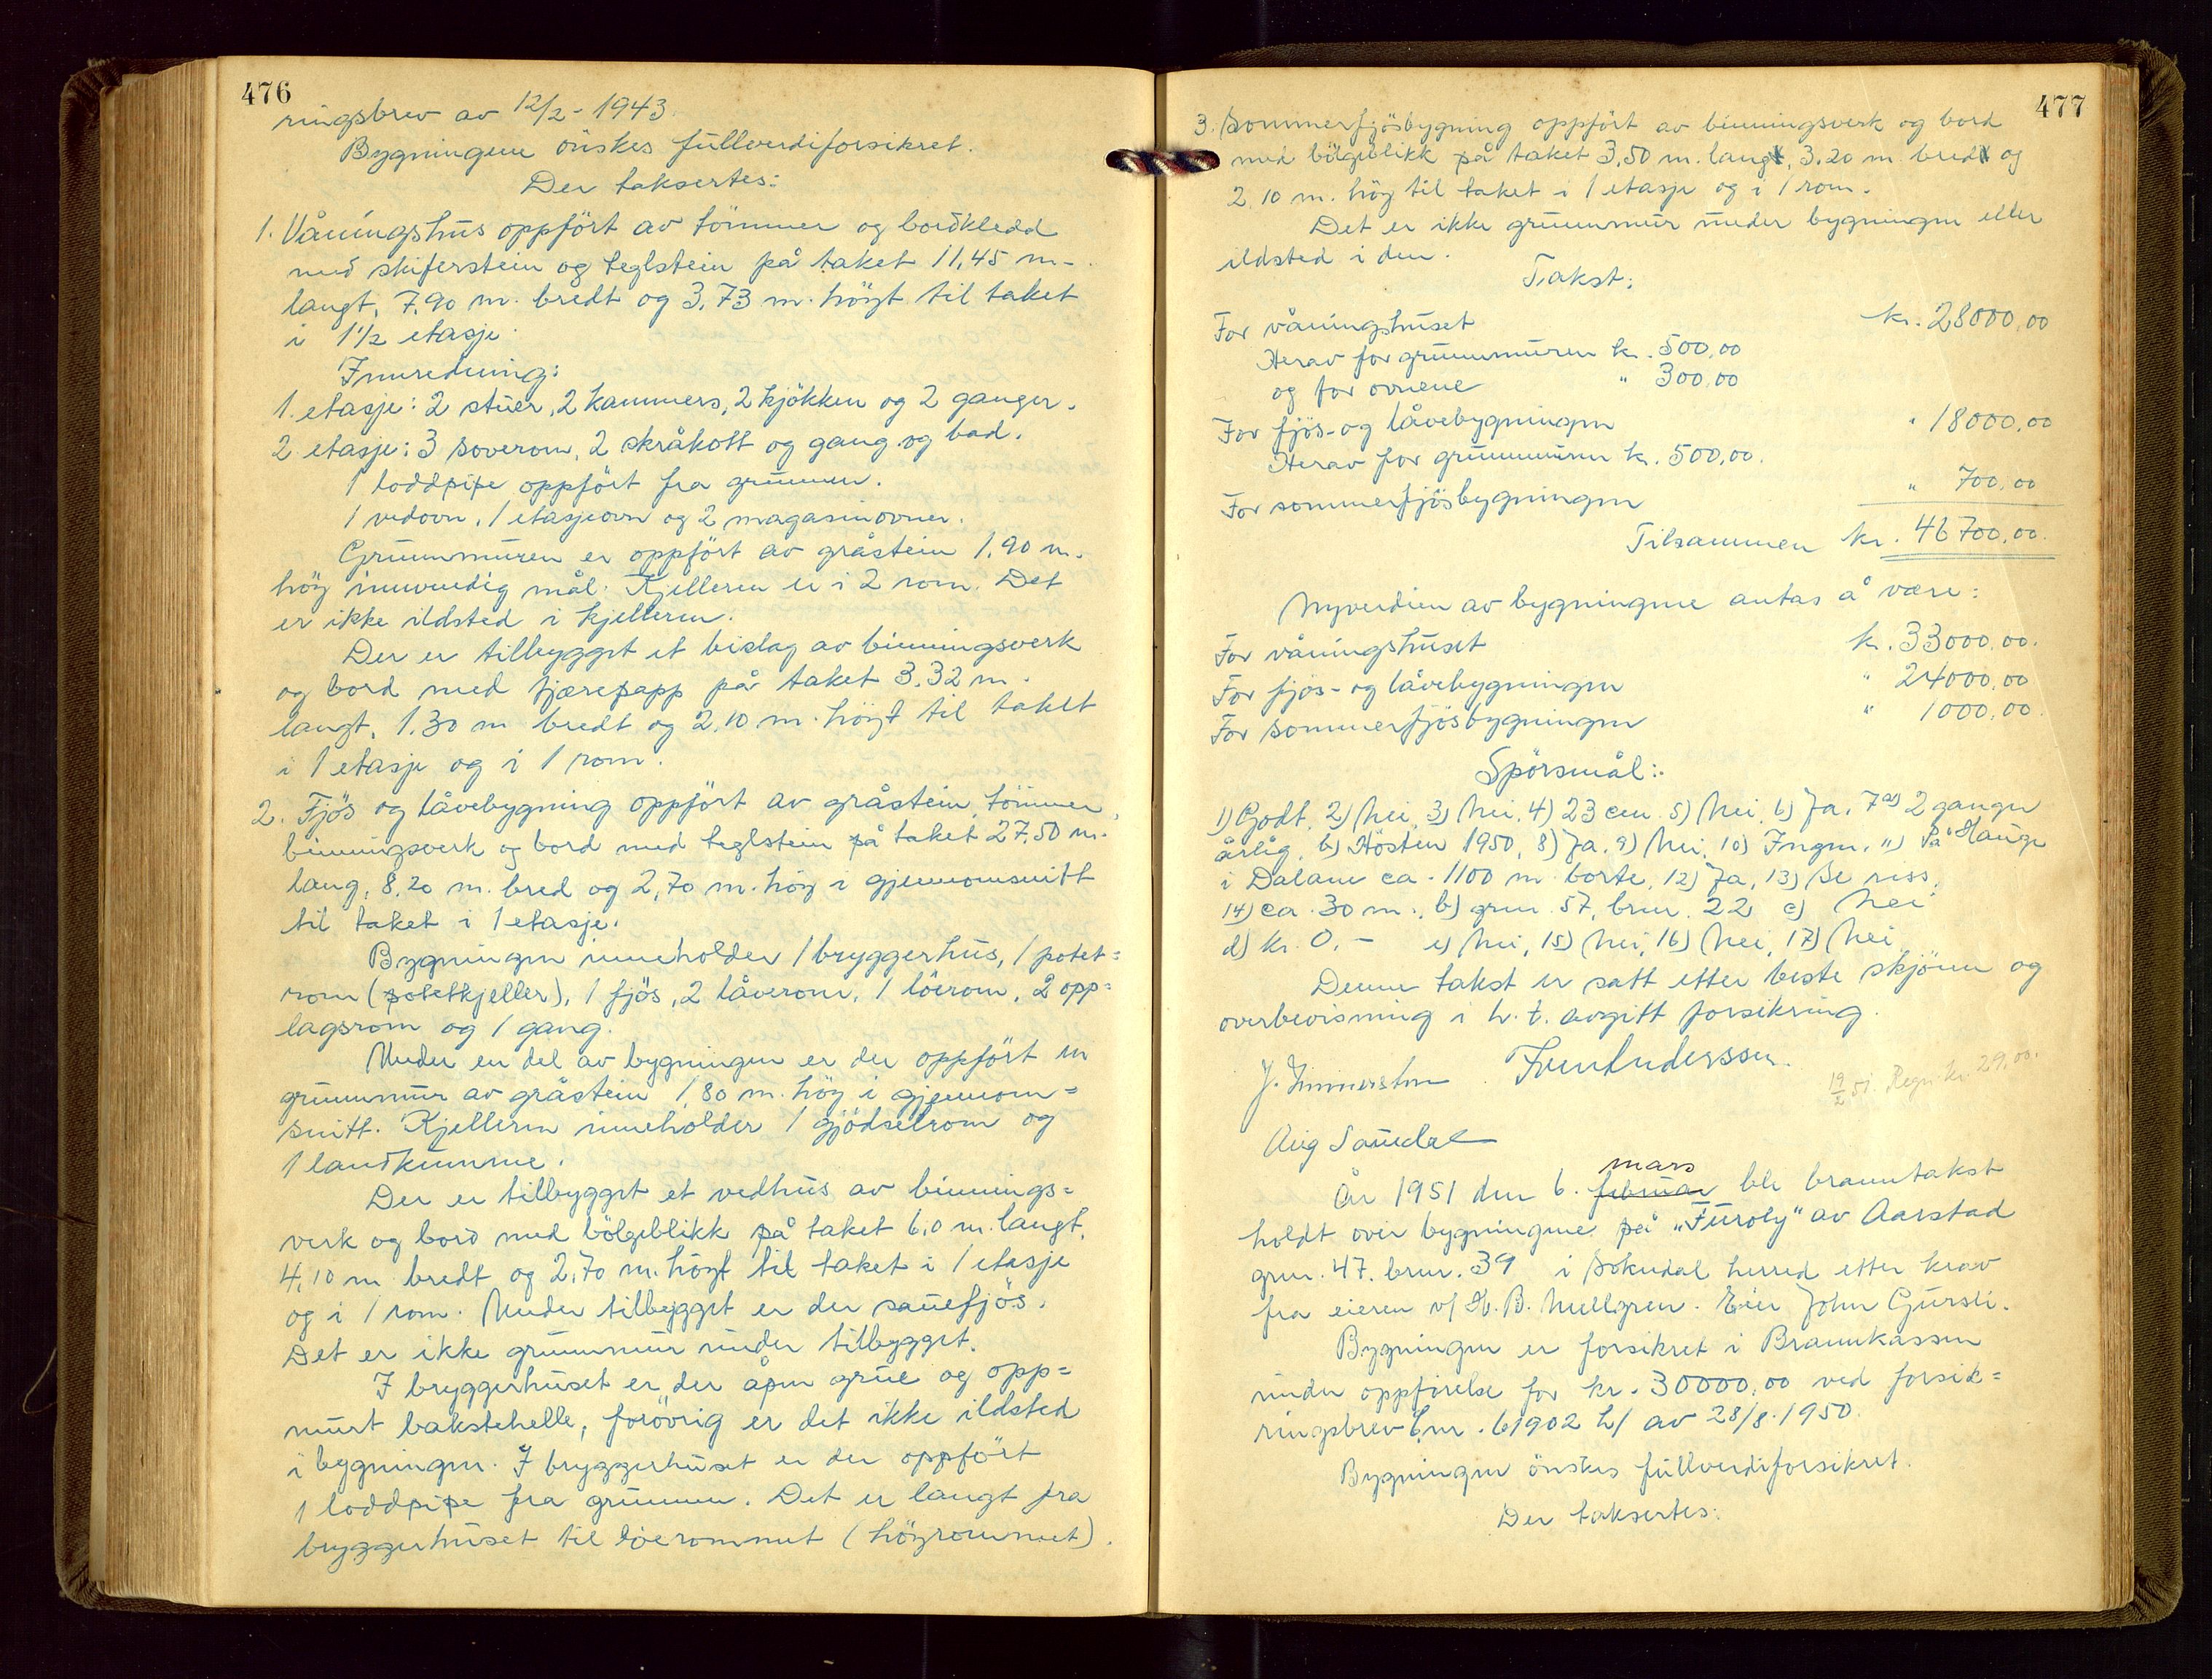 476
ringsbrev av 12/2 - 1943.
Bygningene önskes fullverdiforsikret.
Der taksertes:
1. Våningshus oppfört av tömmer og bordkledd
med skiferstein og teglstein på taket 11,45 m.
langt, 7,90 m. bredt og 3,73 m. höyt til taket
i 1 1/2 etasje.
Innredning:
1. etasje: 2 stuer, 2 kammers, 2 kjökken og 2 ganger.
2 etasje: 3 soverom, 2 skråkott og gang og bad.
1 loddpipe oppfört fra grunnen.
1 vedovn, 1 etasjeovn og 2 magasinovner.
Grunnmuren er oppfört av gråstein 1,90 m.
höy innvendig mål. Kjelleren er i 2 rom. Det
er ikke ildsted i kjelleren.
Der er tilbygget et bislag av binningsverk
og bord med tjærepapp på taket 3,32 m.
langt, 1,30 m bredt og 2,10 m. höyt til taket
i 1 etasje og i 1 rom.
2. Fjös og låvebygning oppfört av gråstein, tömmer,
binningsverk og bord med teglstein på taket 27,50 m.
lang, 8,20 m. bred og 2,70 m. höy i gjennomsnitt
til taket i 1 etasje.
Bygningen inneholder 1 bryggerhus, 1 potet=
rom (potetkjeller), 1 fjös, 2 låverom, 1 löerom, 2 opp=
lagsrom og 1 gang.
Under en del av bygningen er der oppfört en
grunnmur av gråstein 1,80 m. höy i gjennom=
snitt. Kjelleren inneholder 1 gjödselrom og
1 landkumme.
Der er tilbygget et vedhus av binnings=
verk og bord med bölgeblikk på taket 6,0 m. langt,
4,10 m bredt og 2,70 m. höyt til taket i 1 etasje
og i 1 rom. Under tilbygget er der sauefjös.
Det er ikke grunnmur under tilbygget.
I bryggerhuset er der åpen grue og opp=
murt bakstehelle, forövrig er det ikke ildsted
i bygningen. I bryggerhuset er der oppfört
1 loddpipe fra grunnen. Det er langt fra
bryggerhuset til löerommet (höyrommet).
477
3. Sommerfjösbygning oppfört av binningsverk og bord
med bölgeblikk på taket 3,50 m. lang, 3,20 m. bred og
2,10 m. höy til taket i 1 etasje og i 1 rom.
Det er ikke grunnmur under bygningen eller
ildsted i den.
Takst:
For våningshuset kr. 28000,00
Herav for grunnmuren kr. 500,00
og for ovnene " 300,00
For fjös- og låvebygningen " 18000,00
Herav for grunnmuren kr. 500,00.
For sommerfjösbygningen " 700,00
Tilsammen kr. 46700,00.
Nyverdien av bygningene antas å være:
For våningshuset kr. 33000,00.
For fjös- og låvebygningen " 24000,00
For sommerfjösbygningen " 1000,00.
Spörsmål:
1) Godt, 2) Nei, 3) Nei, 4) 23 cm. 5) Nei, 6) Ja, 7 a) 2 ganger
årlig, b) Hösten 1950, 8) Ja, 9) Nei, 10) Ingen, 11) På Hauge
i Dalane ca. 1100 m borte, 12) Ja, 13) Se riss,
14) ca. 30 m., b) gnr. 57, bnr. 22 c) Nei
d) kr. 0,- e) Nei, 15) Nei, 16) Nei, 17) Nei
Denne takst er satt etter beste skjönn og
overbevisning i h. t. avgitt forsikring.
19/2 51. Regn. kr. 29,00.
Aug Sauedal
År 1951 den 6. februar mars ble branntakst
holdt over bygningene på "Furoly" av Aarstad
gnr. 47. bnr. 39 i Sokndal herred etter krav
fra eieren v/ H. B. Mellgren. Eier John Gursli.
Bygningen er forsikret i Brannkassen
under oppförelse for kr. 30000,00 ved forsik=
ringsbrev L.nr. 61902 h/ av 28/8. 1950.
Bygningen önskes fullverdiforsikret.
Der taksertes: